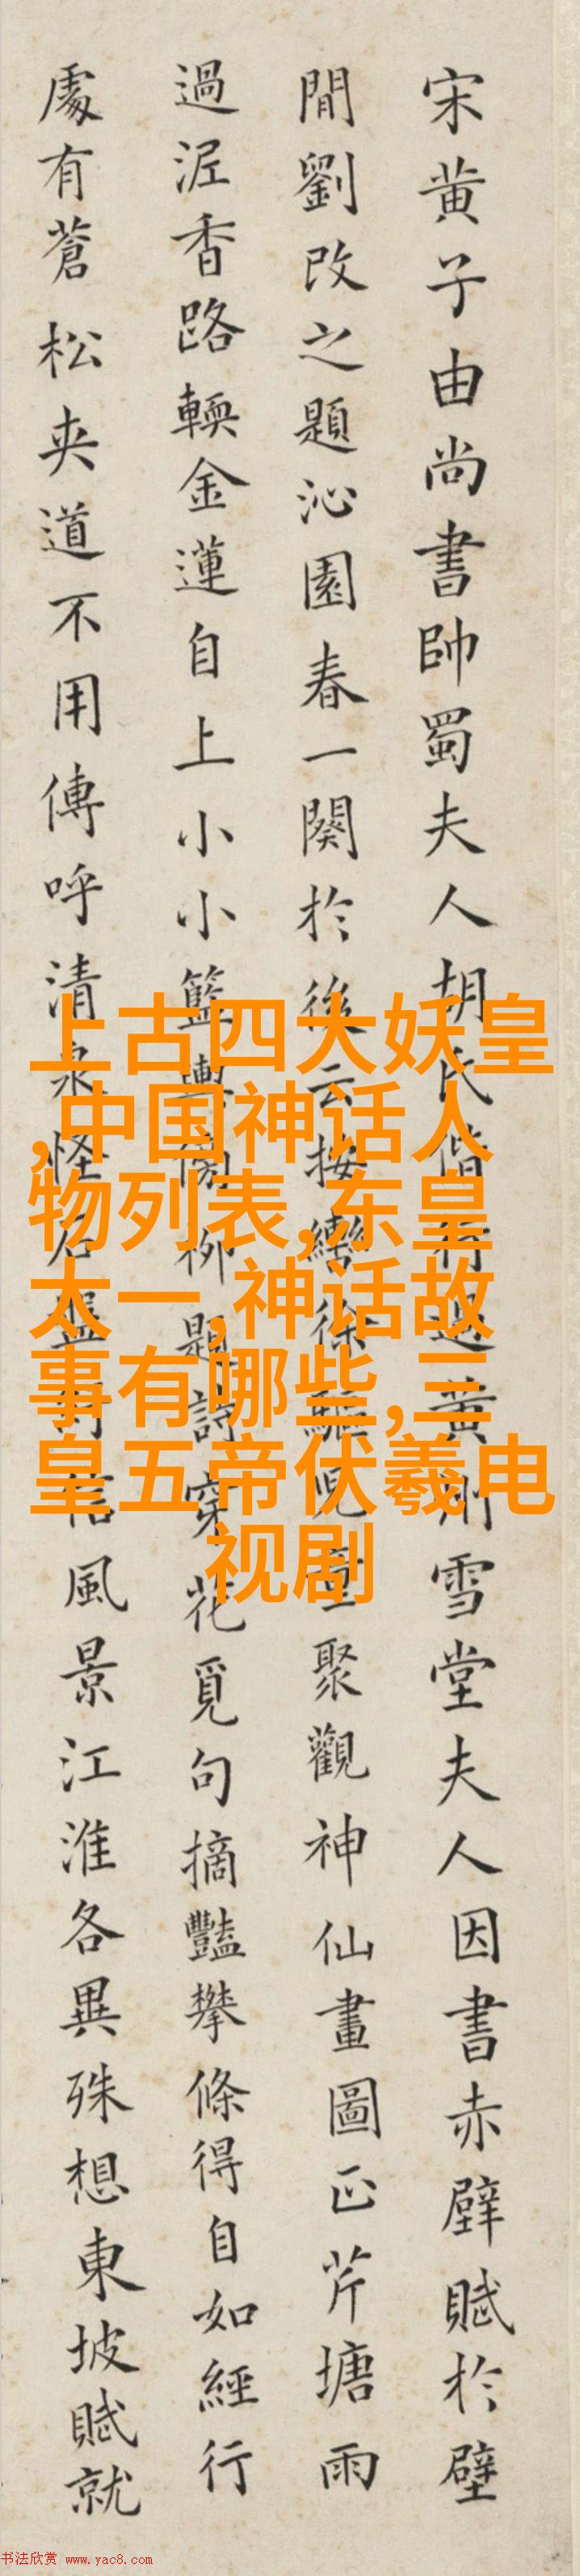 宋黄子由尚書帥蜀夫人胡氏偕行過黄州雪堂夫人因書赤壁賦於壁
間劉改之題沁園春一闋於後云按轡徐驅兒童聚觀神仙畫圖正芹塘雨
過泥香路輭金蓮自上小小籃輿傍柳題詩穿花覓句摘豔攀條得自如經行
處有蒼松夾道不用傳呼清泉怪石盤信風景江淮各異殊想東坡賦就
上古四大妖皇
,中国神话人
物列表,东皇
太一,神话故
事有哪些,三
皇五帝伏羲电
视剧
书法欣赏 www.yac8.com